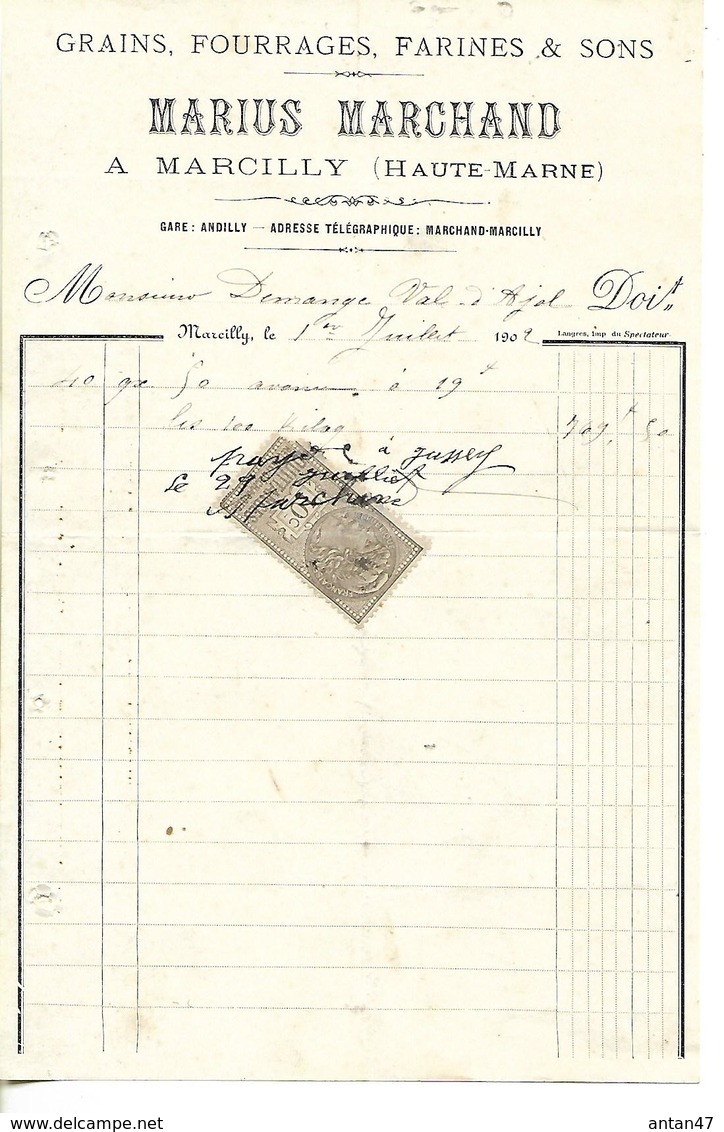 GRAINS, FOURRAGES, FARINES & SONS
MARIUS MARCHAND
A MARCILLY (HAUTE-MARNE)
GARE: ANDILLY — ADRESSE TÉLÉGRAPHIQUE: MARCHAND-MARCILLY
Monsieur Demange Val-d'Ajol Doit
Marcilly, le 1er Juillet 1902
Langres, Imp. du Spectateur
40 qx 50 avoine à 19f
les 100 kilog 50
à Jussey
le 29 Juillet
Marchand
delcampe.net
antan47